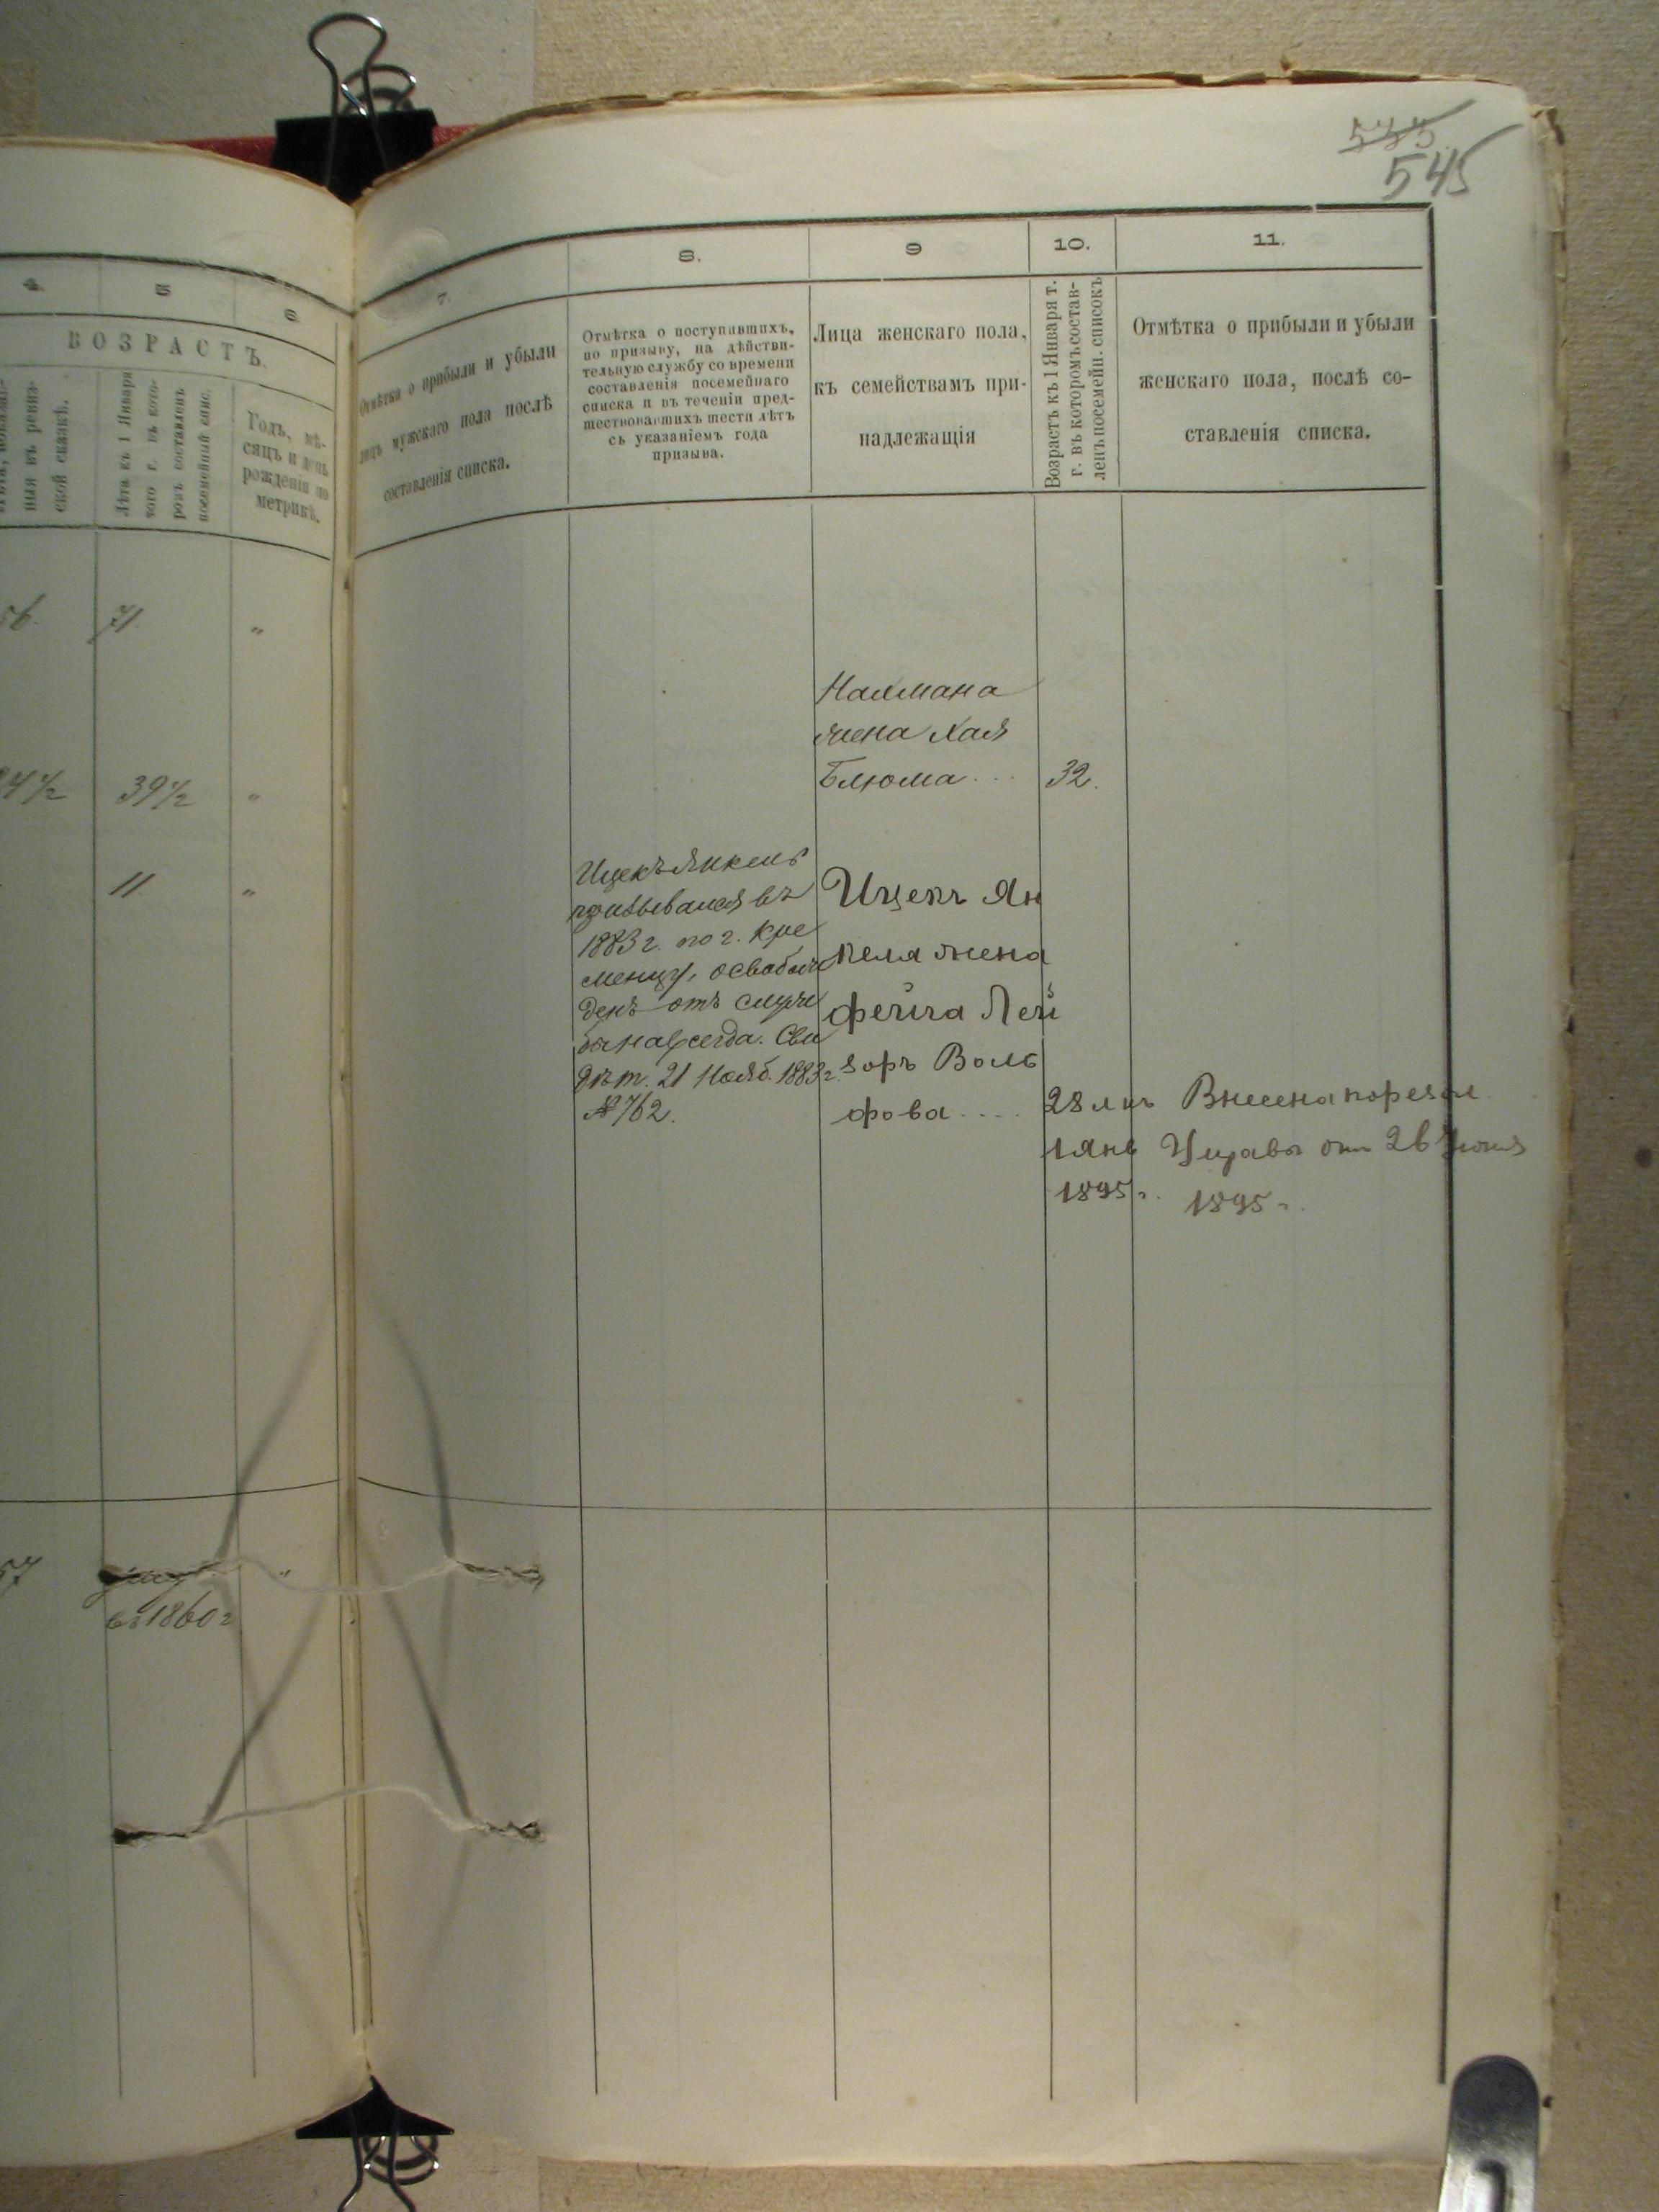 535.
545
4.
5
6.
ВОЗРАСТЪ.
ныя въ ревиз-
ской сказкѣ.
Лѣта къ 1 Января
того г. въ кото-
ромъ составленъ
посемейный спис.
Годъ, мѣ-
сяцъ и день
рожденія по
метрикѣ.
56.
71.
"
39 1/2
"
11
"
57
въ 1860 г
"
7.
8.
9
10.
11.
Отмѣтка о прибыли и убыли
лицъ мужскаго пола послѣ
составленія списка.
Отмѣтка о поступившихъ,
по призыву, на дѣйстви-
тельную службу со времени
составленія посемейнаго
списка и въ теченіи пред-
шествовавшихъ шести лѣтъ
съ указаніемъ года
призыва.
Лица женскаго пола,
къ семействамъ при-
надлежащія
Возрастъ къ 1 Января т.
г. въ которомъ состав-
ленъ посемейн. списокъ
Отмѣтка о прибыли и убыли
женскаго пола, послѣ со-
ставленія списка.
Нахмана
жена Хая
Блюма ... 32.
Ицекъ Янкель
призывался въ
1883 г. по г. Кре
менцу, освобож
денъ отъ служ
бы навсегда. Сви
дѣт. 21 Нояб. 1883 г.
№ 762.
Ицекъ Ян
келя жена
Фейга Лей
зоръ Воль
фова .... 28 лѣтъ
1 Янв
1895 г.
Внесена по резол.
Управы отъ 26 Июня
1895 г.